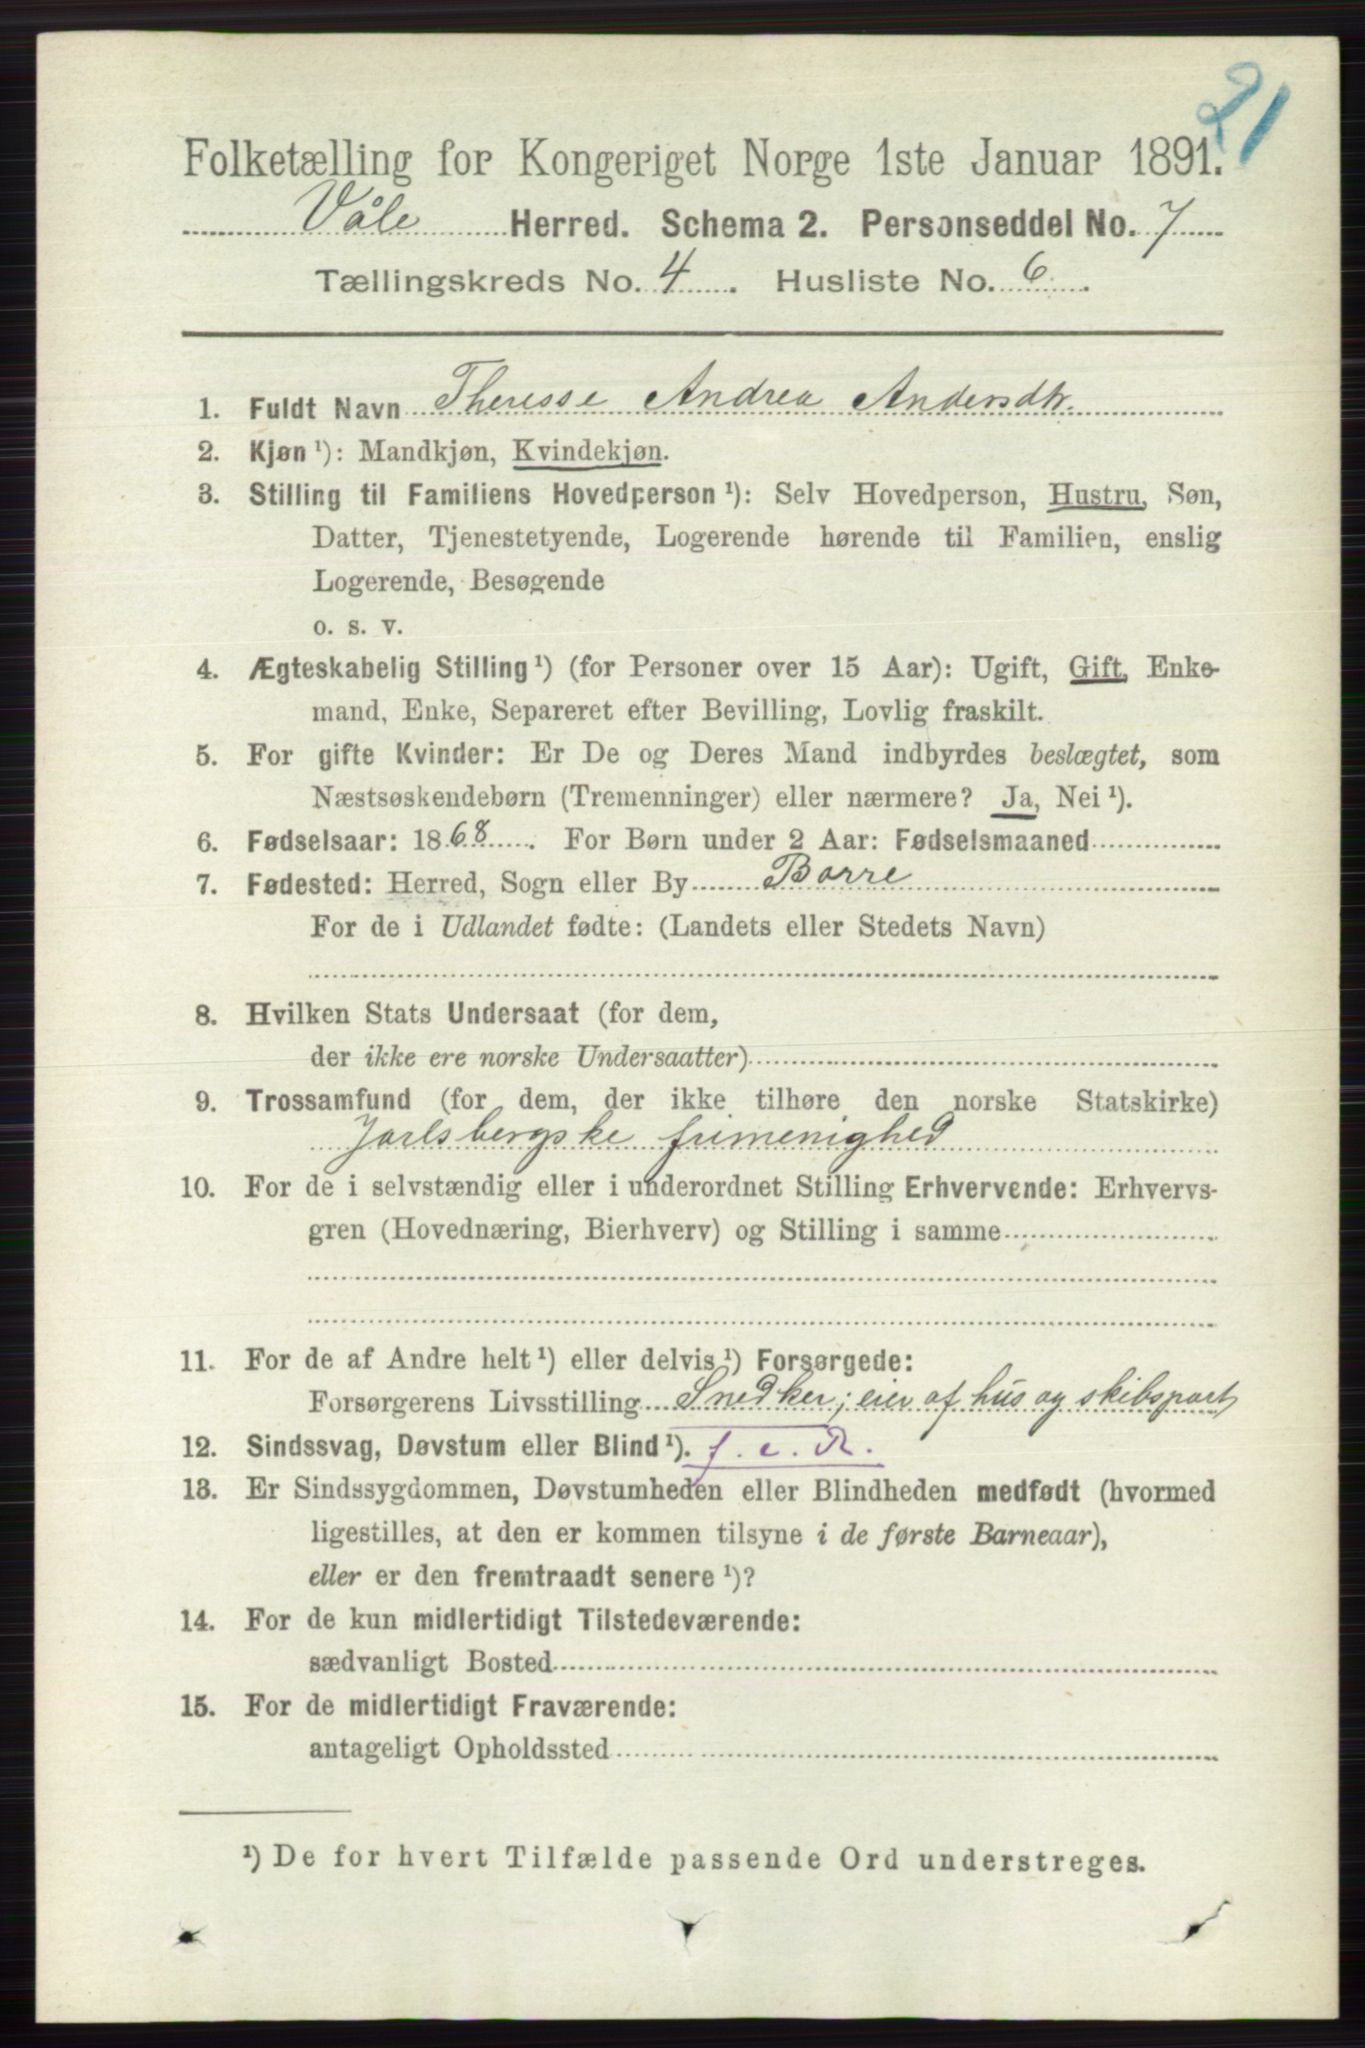 21
Folketælling for Kongeriget Norge 1ste Januar 1891.
Våle Herred. Schema 2. Personseddel No. 7
Tællingskreds No. 4. Husliste No. 6.
1. Fuldt Navn Theresse Andrea Andersdtr.
2. Kjøn ¹): Mandkjøn, Kvindekjøn.
3. Stilling til Familiens Hovedperson ¹): Selv Hovedperson, Hustru, Søn,
Datter, Tjenestetyende, Logerende hørende til Familien, enslig
Logerende, Besøgende
o. s. v.
4. Ægteskabelig Stilling ¹) (for Personer over 15 Aar): Ugift, Gift, Enke-
mand, Enke, Separeret efter Bevilling, Lovlig fraskilt.
5. For gifte Kvinder: Er De og Deres Mand indbyrdes beslægtet, som
Næstsøskendebørn (Tremenninger) eller nærmere? Ja, Nei ¹).
6. Fødselsaar: 1868. For Børn under 2 Aar: Fødselsmaaned
7. Fødested: Herred, Sogn eller By Borre
For de i Udlandet fødte: (Landets eller Stedets Navn)
8. Hvilken Stats Undersaat (for dem,
der ikke ere norske Undersaatter)
9. Trossamfund (for dem, der ikke tilhøre den norske Statskirke)
Jarlsbergske frimenighed
10. For de i selvstændig eller i underordnet Stilling Erhvervende: Erhvervs-
gren (Hovednæring, Bierhverv) og Stilling i samme
11. For de af Andre helt ¹) eller delvis ¹) Forsørgede:
Forsørgerens Livsstilling Snedker; eier af hus og skibspart
12. Sindssvag, Døvstum eller Blind ¹). f. c. R.
13. Er Sindssygdommen, Døvstumheden eller Blindheden medfødt (hvormed
ligestilles, at den er kommen tilsyne i de første Barneaar),
eller er den fremtraadt senere ¹)?
14. For de kun midlertidigt Tilstedeværende:
sædvanligt Bosted
15. For de midlertidigt Fraværende:
antageligt Opholdssted
¹) De for hvert Tilfælde passende Ord understreges.